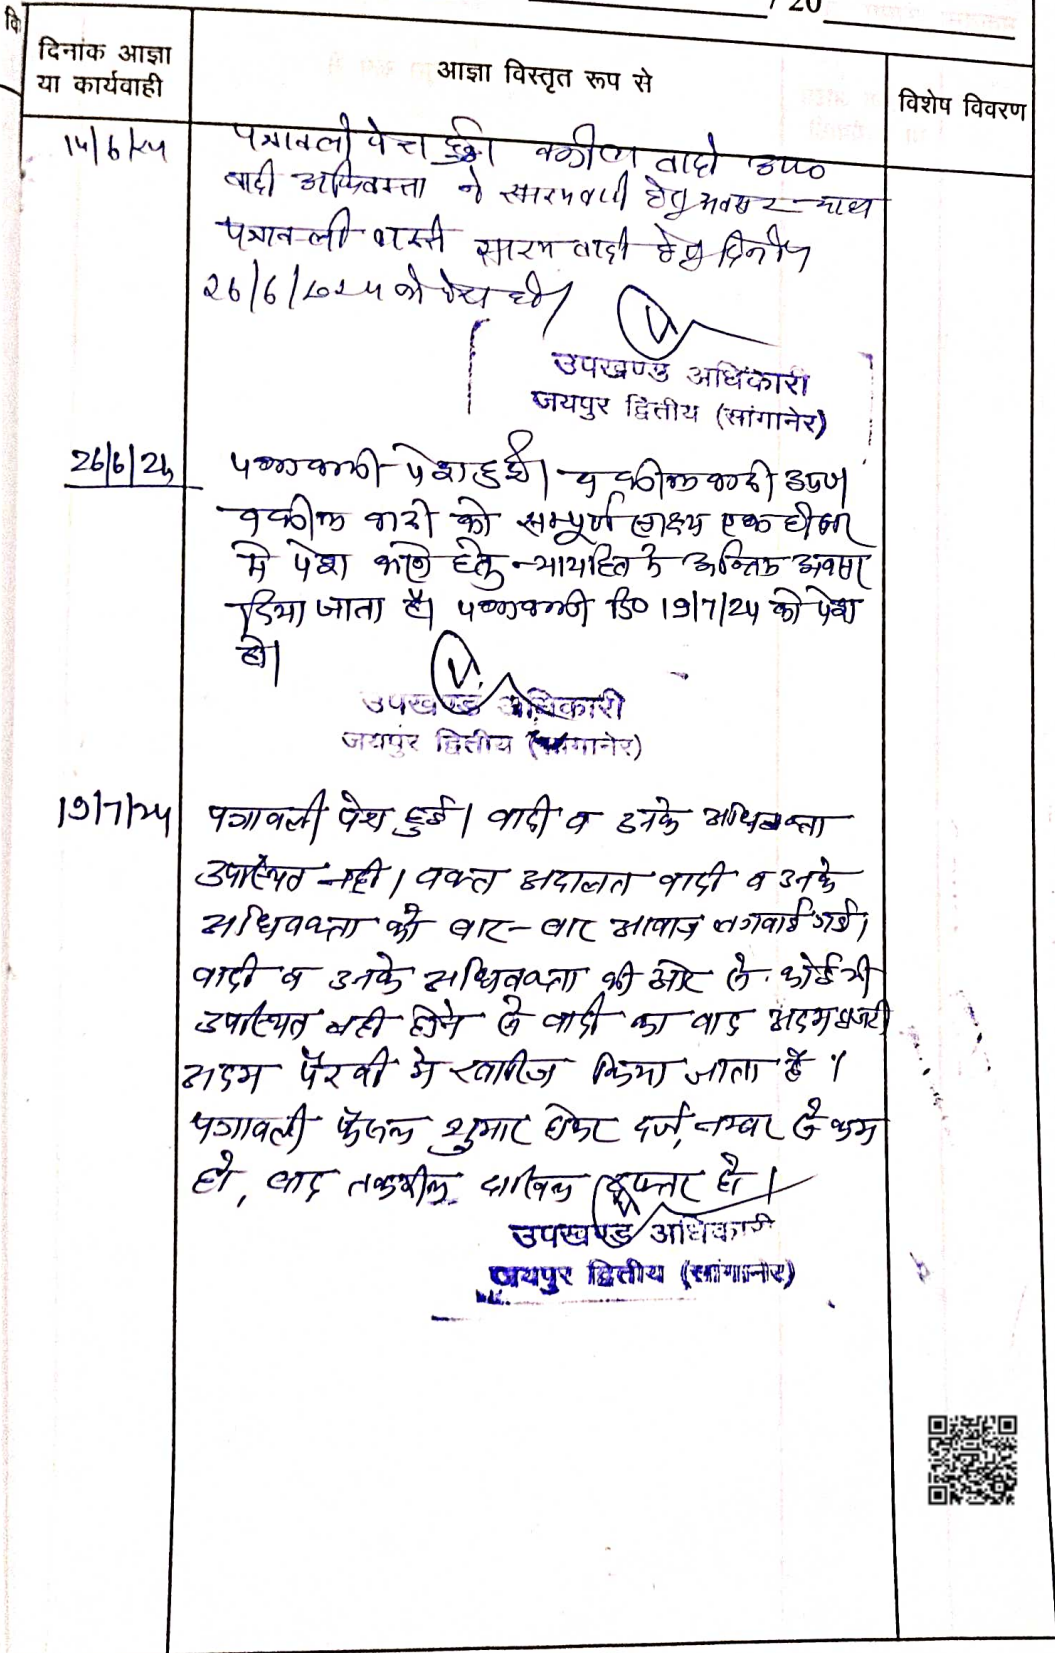 / 20
दिनांक आज्ञा
या कार्यवाही
आज्ञा विस्तृत रूप से
विशेष विवरण
पत्रावली पेश हुई। वकील वादी उप०
वादी अधिवक्ता ने साक्ष्य वादी हेतु अवसर चाहा
पत्रावली वास्ते साक्ष्य वादी हेतु दिनांक
26/6/2024 को पेश हो।
उपखण्ड अधिकारी
जयपुर द्वितीय (सांगानेर)
26/6/24
पत्रावली पेश हुई। वकील वादी उप०।
वकील वादी को सम्पूर्ण साक्ष्य एक
मे पेश करने हेतु न्यायहित मे अन्तिम अवसर
दिया जाता है। पत्रावली दि० 19/7/24 को पेश
हो।
उपखण्ड अधिकारी
जयपुर द्वितीय (सांगानेर)
19/7/24
पत्रावली पेश हुई। वादी व उनके अधिवक्ता
उपस्थित नही। वक्त अदालत वादी व उनके
अधिवक्ता को बार-बार आवाज लगवाई गई।
वादी व उनके अधिवक्ता की ओर से कोई भी
उपस्थित नही होने से वादी का वाद अदम हाजरी
अदम पैरवी मे खारिज किया जाता है।
पत्रावली फैसल शुमार होकर दर्ज नम्बर से कम
हो, बाद तकमील दाखिल दफ्तर हो।
उपखण्ड अधिकारी
जयपुर द्वितीय (सांगानेर)